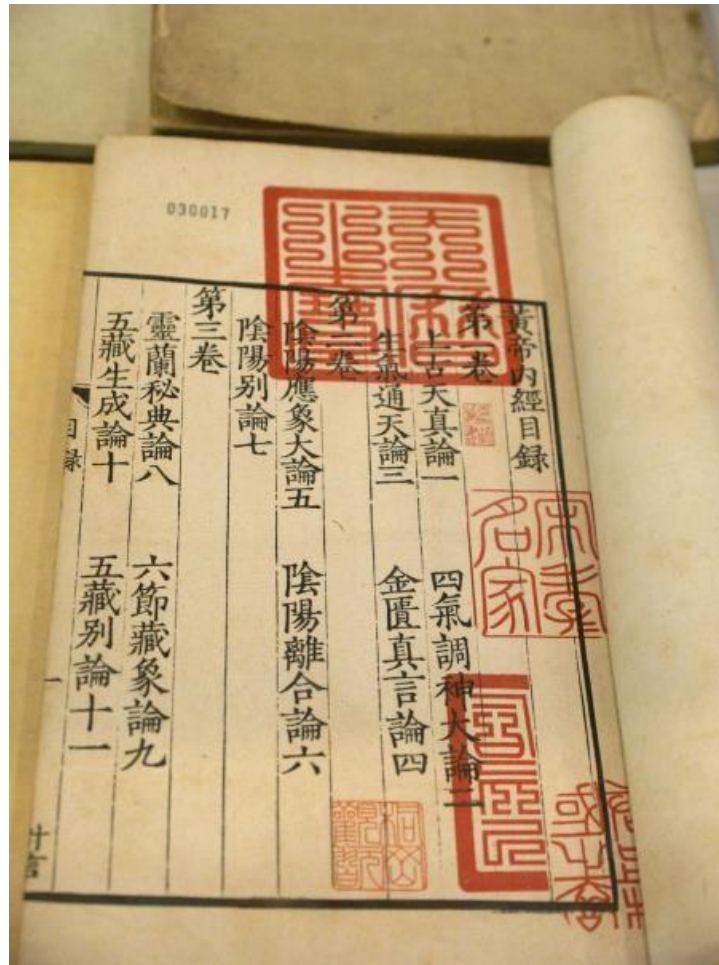 030017
黃帝內經目録
第一卷
上古天真論一　四氣調神大論二
生氣通天論三　金匱真言論四
第二卷
陰陽應象大論五　陰陽離合論六
陰陽别論七
第三卷
靈蘭秘典論八　六節藏象論九
五藏生成論十　五藏别論十一
目録
一